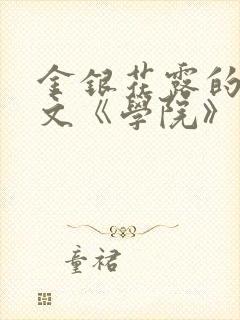 金銀花露的
文《學院》
童裙